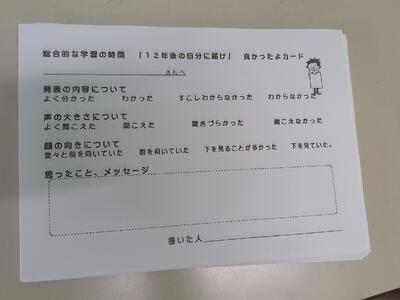 総合的な学習の時間　「１２年後の自分に届け」　良かったよカード
さんへ
発表の内容について
よく分かった　わかった　すこしわからなかった　わからなかった
声の大きさについて
よく聞こえた　聞こえた　聞きづらかった　聞こえなかった
顔の向きについて
堂々と前を向いていた　前を向いていた　下を見ることが多かった　下を見ていた。
思ったこと、メッセージ
書いた人